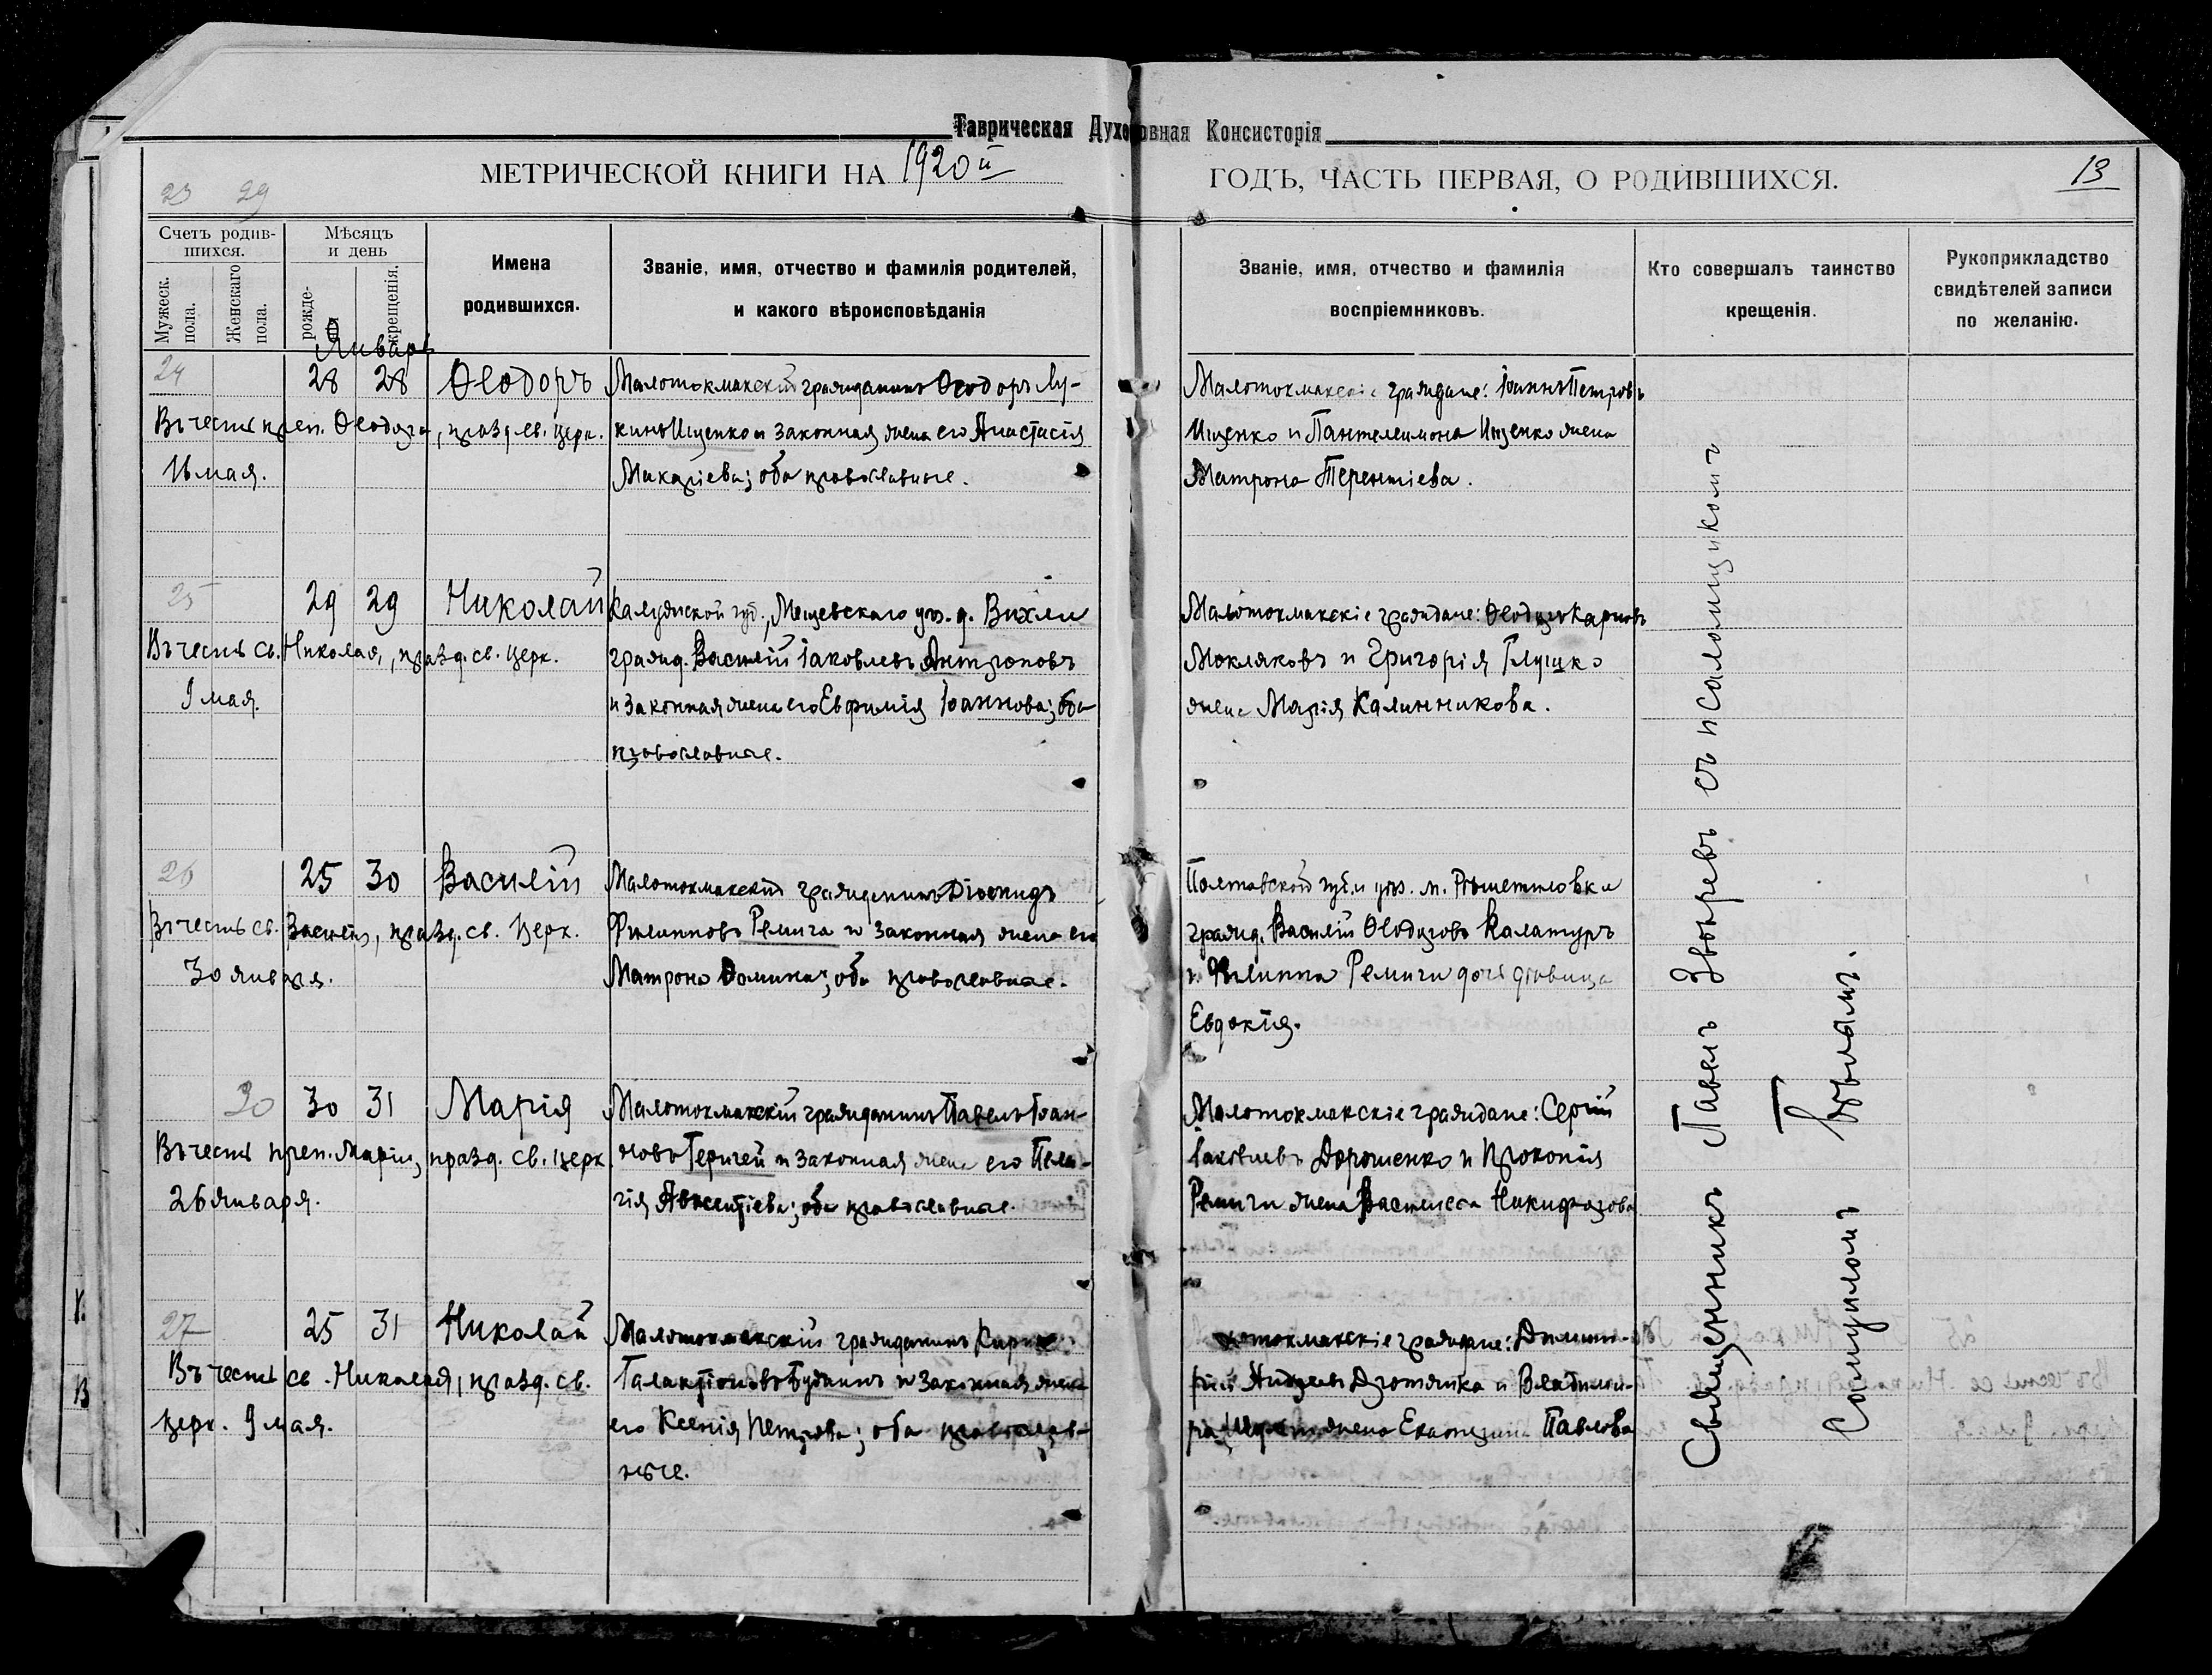 Таврическая Духовная Консисторія
МЕТРИЧЕСКОЙ КНИГИ НА 1920й ГОДЪ, ЧАСТЬ ПЕРВАЯ, О РОДИВШИХСЯ.
13
23 29
Счетъ родившихся.
Мужеск. пола.
Женскаго пола.
Мѣсяцъ и день
рожденія
крещенія.
Имена родившихся.
Званіе, имя, отчество и фамилія родителей,
и какого вѣроисповѣданія
Званіе, имя, отчество и фамилія
воспріемниковъ.
Кто совершалъ таинство
крещенія.
Рукоприкладство
свидѣтелей записи
по желанію.
Январь
24 28 28 Ѳеодоръ
Въ честь преп. Ѳеодора, празд. св. церк.
16 мая.
Малотокмакскій гражданинъ Ѳеодоръ Лу-
кинъ Ищенко и законная жена его Анастасія
Макаріева; оба православные.
Малотокмакскіе граждане: Іоаннъ Петровъ
Ищенко и Пантелеимона Ищенко жена
Матрона Терентіева.
25 29 29 Николай
Въ честь св. Николая, празд. св. церк.
9 мая.
Калужской губ., Мещевскаго уѣз. д. Вихли
гражд. Василій Іаковлевъ Антроповъ
и законная жена его Евфимія Іоаннова; оба
православные.
Малотокмакскіе граждане: Ѳеодоръ Карповъ
Мокляковъ и Григорія Глушко
жена Марія Калинникова.
26 25 30 Василій
Въ честь св. Василія, празд. св. церк.
30 января.
Малотокмакскій гражданинъ Діомидъ
Филипповъ Ремига и законная жена его
Матрона Домина; оба православные.
Полтавской губ. и уѣз. м. Рѣшетиловки
гражд. Василій Ѳеодоровъ Калатуръ
и Филиппа Ремиги дочь дѣвица
Евдокія.
30 30 31 Марія
Въ честь преп. Маріи, празд. св. церк.
26 января.
Малотокмакскій гражданинъ Павелъ Іоан-
новъ Геригей и законная жена его Пела-
гія Авксентіева; оба православные.
Малотокмакскіе граждане: Сергій
Іаковлевъ Дорошенко и Прокопія
Ремиги жена Василисса Никифорова
27 25 31 Николай
Въ честь св. Николая, празд. св.
церк. 9 мая.
Малотокмакскій гражданинъ
Галактіоновъ и законная жена
его Ксенія Петрова; оба православ-
ные.
токмакскіе граждане: Дими-
и Владими-
жена Екатерина Павлова
Священникъ Павелъ Звѣревъ съ псаломщикомъ
Самуиломъ Бѣлымъ.